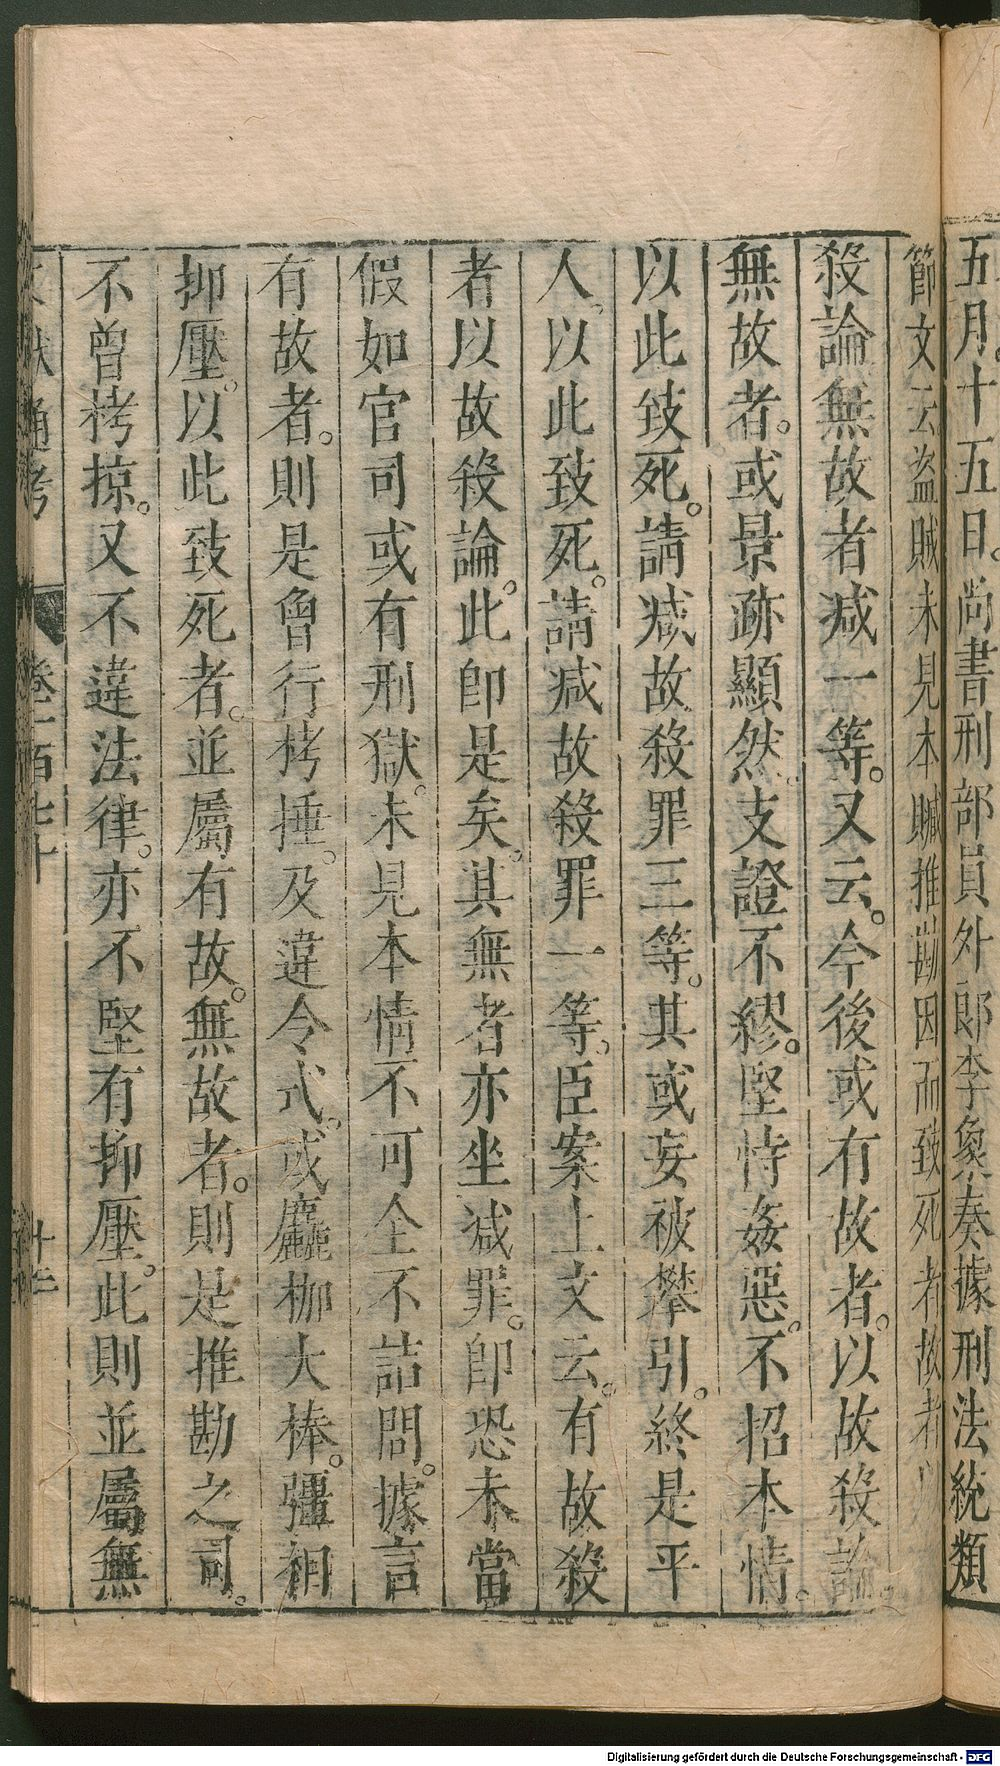 五月十五日。尚書刑部員外郎李象奏據刑法統類
節文云盗賊未見本贓推勘因而致死者故者以
殺論無故者减一等。又云。今後或有故者。以故殺論。
無故者。或景跡顯然。支證不繆。堅恃姦惡。不招本情。
以此致死。請减故殺罪三等。其或妄被攀引。終是平
人。以此致死。請减故殺罪一等。臣案上文云。有故殺
者以故殺論。此卽是矣。其無者亦坐减罪。卽恐未當
假如官司或有刑獄。未見本情不可全不詰問。據言
有故者。則是曾行栲捶。及違令式。或麤枷大棒。彊相
抑壓。以此致死者。並屬有故。無故者。則是推勘之司。
不曾栲掠。又不違法律。亦不堅有抑壓。此則並屬無
文獻通考 卷一百七十 十三
Digitalisierung gefördert durch die Deutsche Forschungsgemeinschaft - DFG